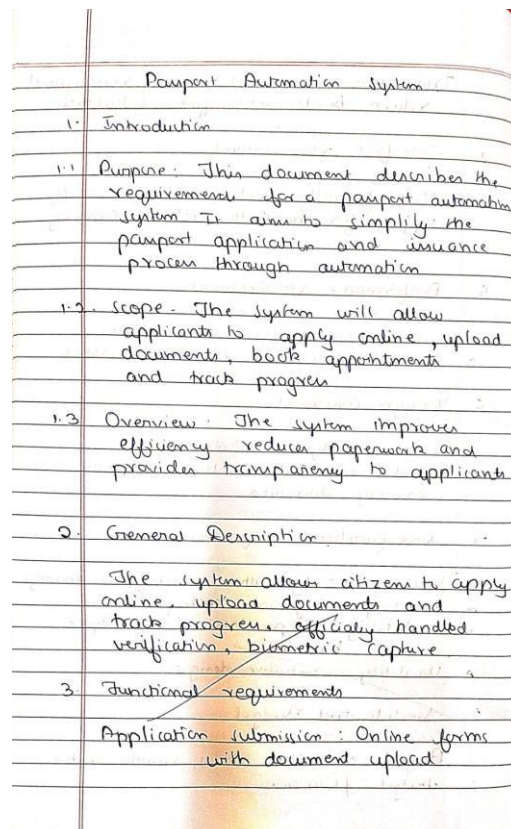 Passport Automation System
1. Introduction
1.1 Purpose: This document describes the
requirements for a passport automation
system It aims to simplify the
passport application and issuance
process through automation
1.2. Scope - The system will allow
applicants to apply online, upload
documents, book appointments
and track progress
1.3 Overview. The system improves
efficiency reduces paperwork and
provides transparency to applicants
2. General Description
The system allows citizens to apply
online, upload documents and
track progress, officialy handled
verification, biometric capture
3. Functional requirements
Application submission: Online forms
with document upload